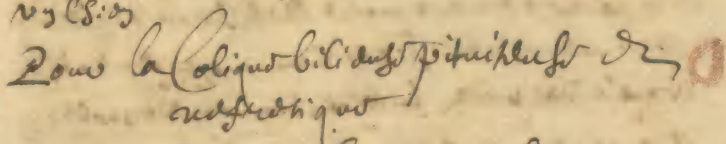 Pour la Colique bilieuse pituiteuse &
nefretique